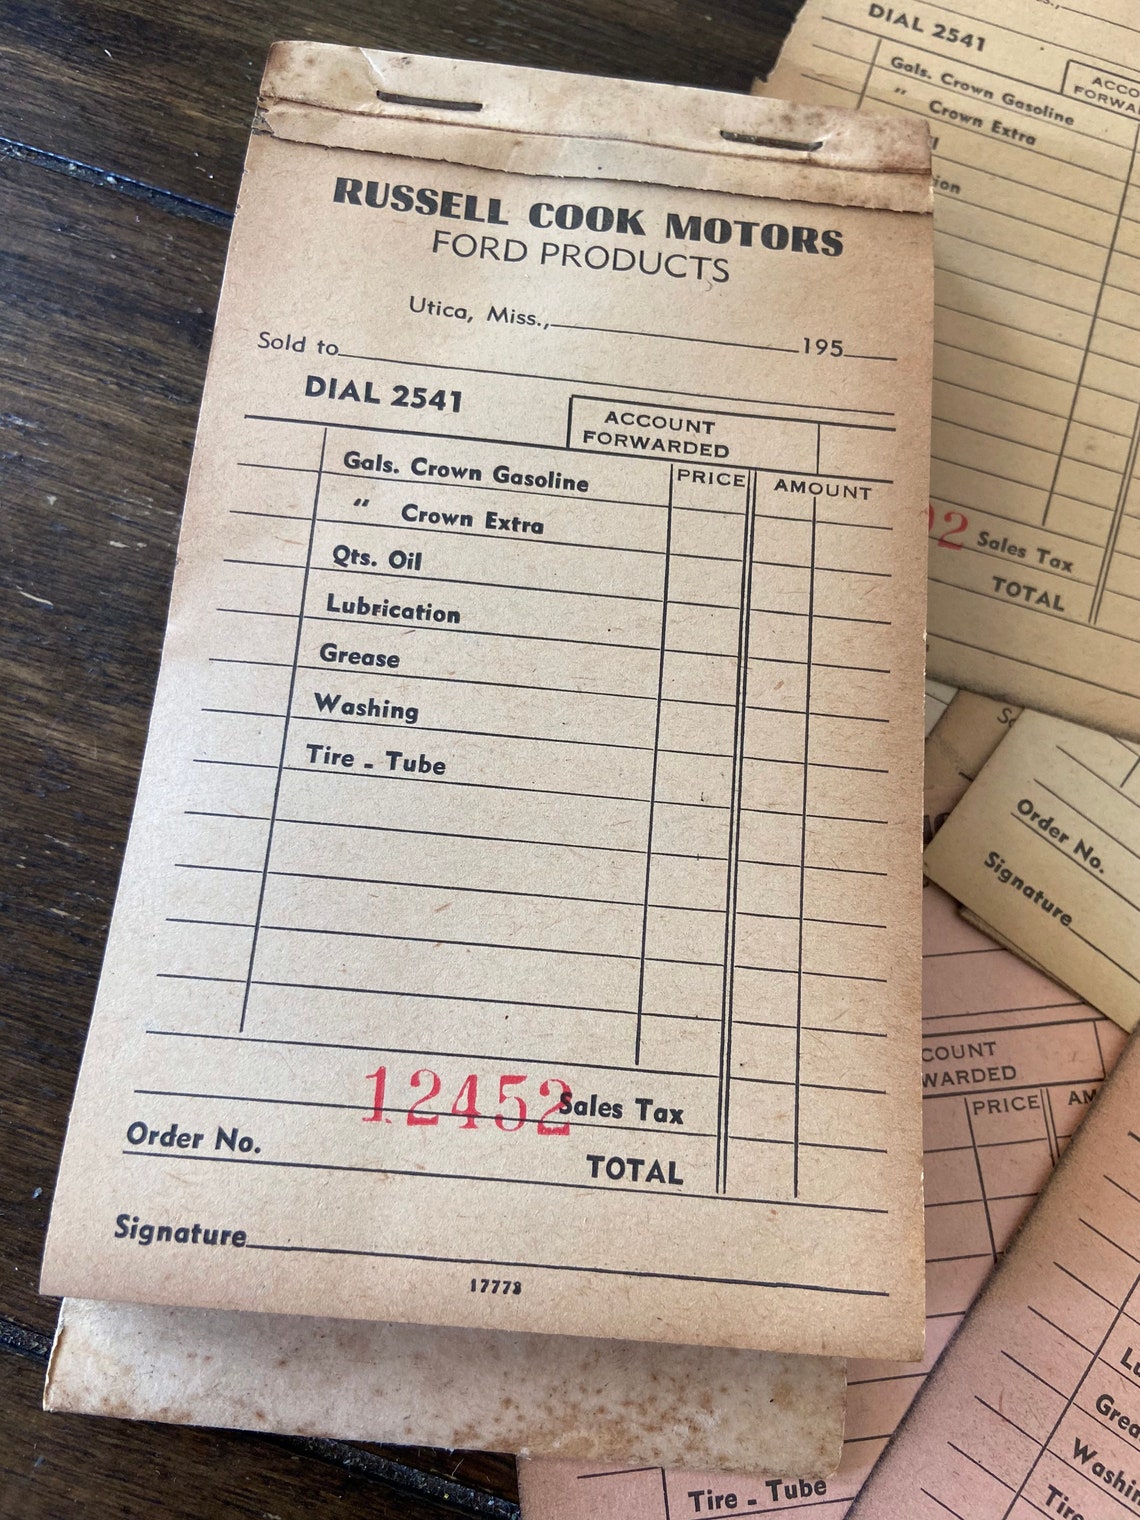 RUSSELL COOK MOTORS
FORD PRODUCTS
Utica, Miss., 195
Sold to
DIAL 2541
ACCOUNT
FORWARDED
PRICE AMOUNT
Gals. Crown Gasoline
" Crown Extra
Qts. Oil
Lubrication
Grease
Washing
Tire - Tube
12452 Sales Tax
Order No. TOTAL
Signature
17773
DIAL 2541
Gals. Crown Gasoline
" Crown Extra
Sales Tax
TOTAL
Order No.
Signature
PRICE
Tire - Tube